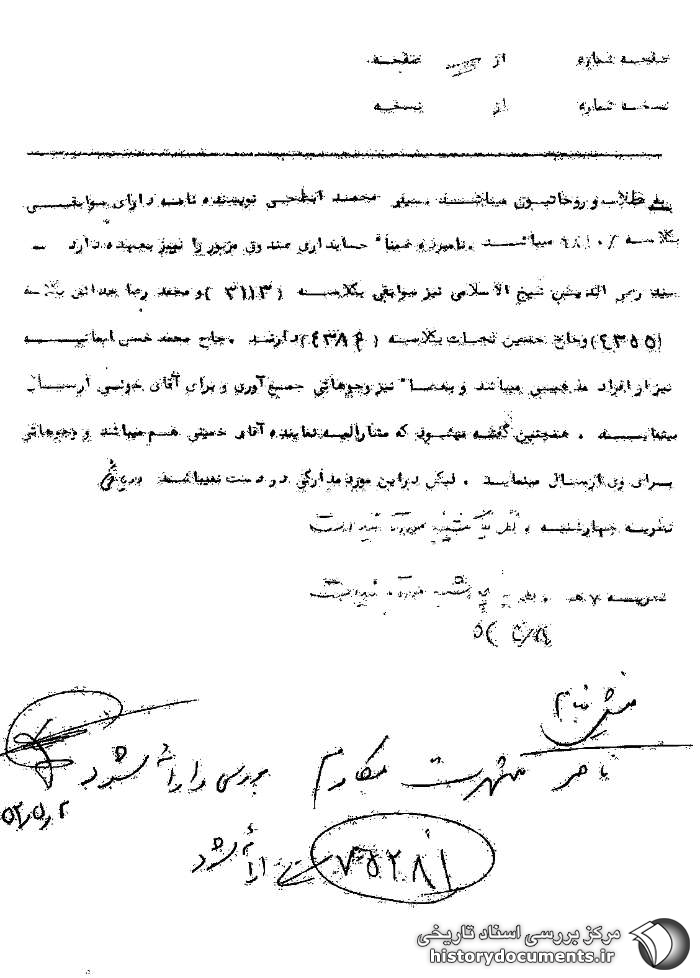 صفحه شماره از صفحه
نسخه شماره از نسخه
به طلاب و روحانیون میباشد محمد ابطحی نویسنده نامه دارای سوابقی
بکلاسه میباشد نامبرده ضمناً حسابداری صندوق مزبور را نیز بعهده دارد -
سید الدین شیخ الاسلامی نیز سوابقی بکلاسه (3113) و محمد رضا حدائق بکلاسه
(4355) و حاج حسین نجات بکلاسه دارند حاج محمد حسن ایمانیه
نیز از افراد مذهبی میباشد و بعضاً نیز وجوهاتی جمع‌آوری و برای آقای خوئی ارسال
مینماید . همچنین گفته میشود که مشارالیه نماینده آقای خمینی هم میباشد و وجوهاتی
برای وی ارسال مینماید . لیکن در این مورد مدارکی در دست نمیباشد
نظریه چهارشنبه . نظریه شنبه مورد تایید است
نظریه ۷ه . نظریه شنبه مورد تایید است
ناصر شهرت مکارم بررسی و ارائه شود
ارائه شود
مرکز بررسی اسناد تاریخی
historydocuments.ir